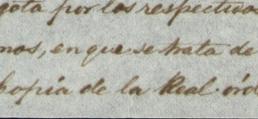 gota por los respectivo
nos, en que se trata de
copia de la Real órd